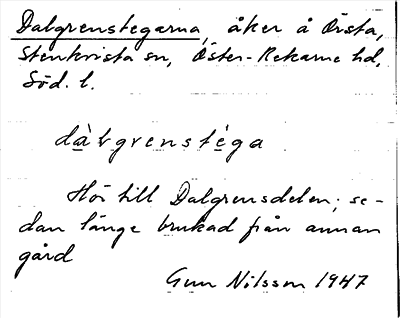 Dalgrenstegarna, åker å Örsta,
Stenkvista sn, Öster-Rekarne hd,
Söd. l.
dàlgrenstéga
Hör till Dalgrensdelen; se-
dan länge brukad från annan
gård
Gun Nilsson 1947